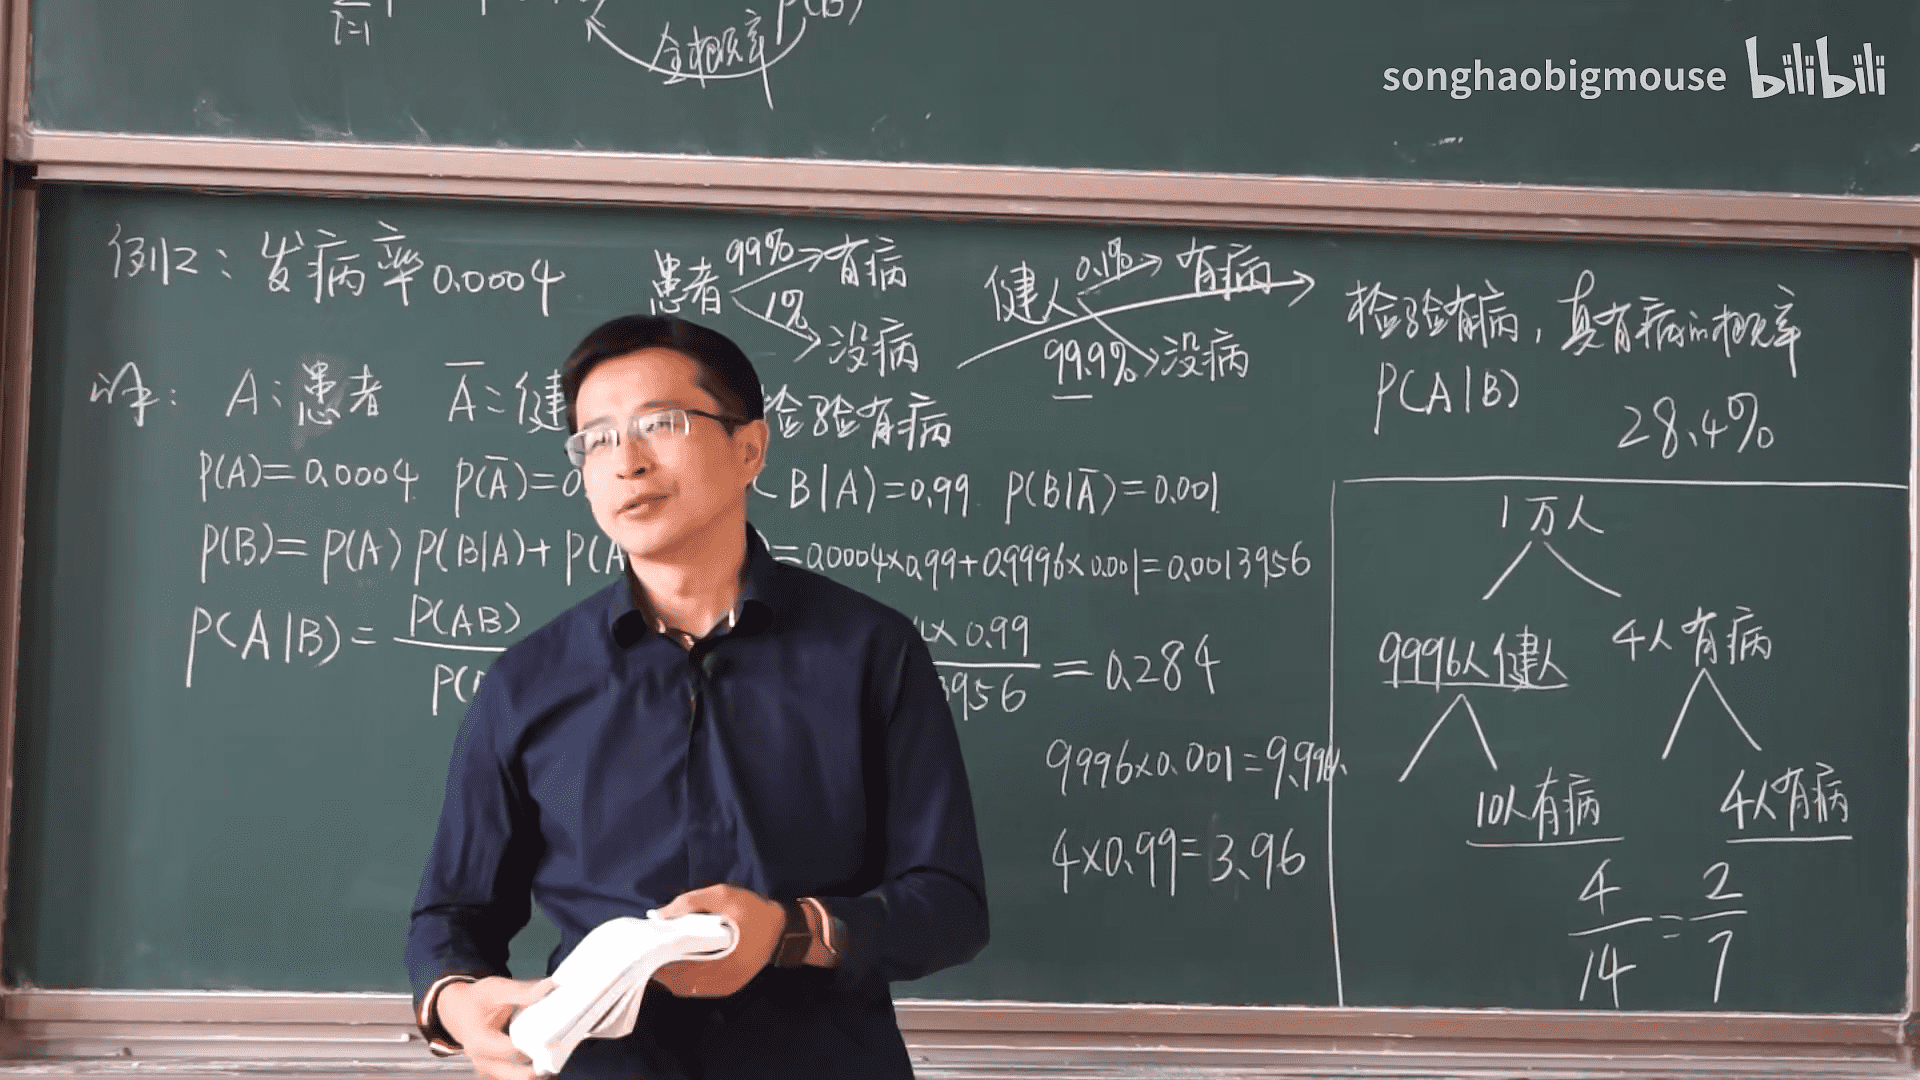 P(B)
全概率
songhaobigmouse bilibili
例12：发病率0.0004
患者 99% 有病
1% 没病
健人 0.1% 有病
99.9% 没病
检验有病，真有病的概率
P(A|B)
28.4%
A：患者 Ā：健
检验有病
P(A)=0.0004 P(Ā)=0
B|A)=0.99 P(B|Ā)=0.001
P(B)=P(A)P(B|A)+P(A
=0.0004×0.99+0.9996×0.001=0.0013956
P(A|B)=P(AB)
P(
4×0.99
3956
=0.284
9996×0.001=9.996
4×0.99=3.96
1万人
9996人健人 4人有病
10人有病 4人有病
4/14=2/7